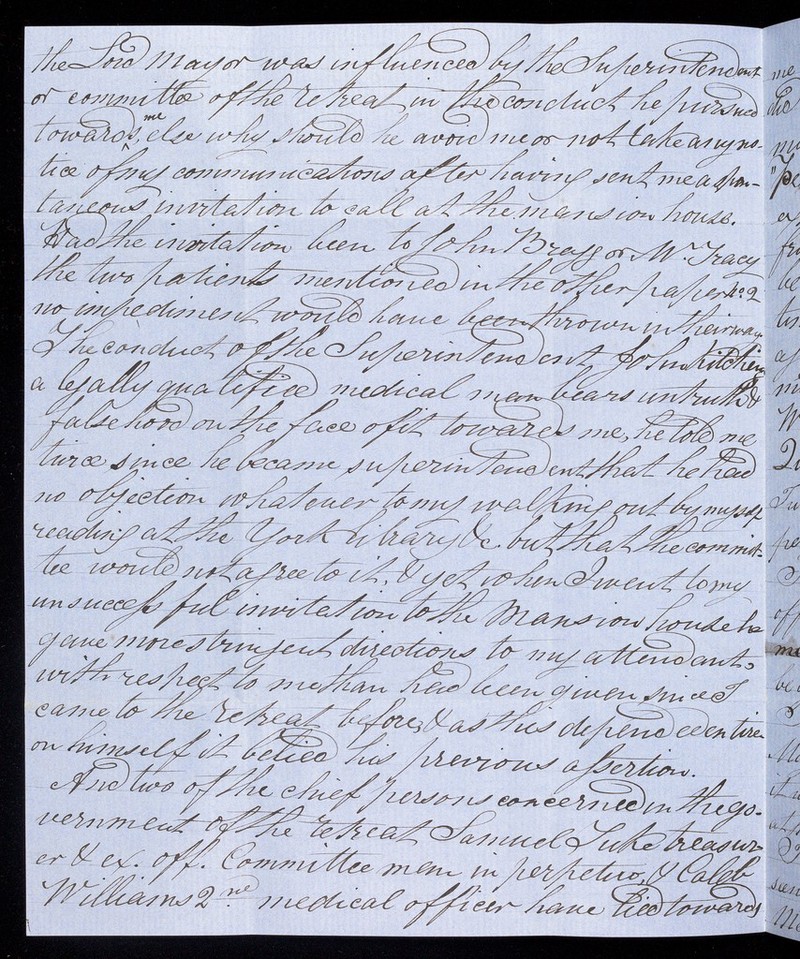 the Lord Mayor was influenced by the Superintendent
or committee of the retreat in the conduct he pursued
towards me, else why should he avoid me or not take any no-
tice of my communications after having sent me a spon-
taneous invitation to call at the mansion house.
Had the invitation been to John Bragg or Mr. Tracy
the two patients mentioned in the other paper No. 2
no impediment would have been thrown in their way
The conduct of the Superintendent, John Kitching
a legally qualified medical man bears untruth &
falsehood on the face of it towards me, he told me
twice since he became superintendent that he had
no objection whatever to my walking out by myself
reading at the York library &c. but that the commit-
tee would not agree to it, & yet when I went to my
unsuccessful invitation to the Mansion house he
gave more stringent directions to my attendant
with respect to me than had been given since I
came to the retreat before, & as this depended entire
on himself it belied his previous assertion.
And two of the chief persons concerned in the go-
vernment of the retreat Samuel Tuke treasur-
er & ex. off. Committee man in perpetuo, & Caleb
Williams 2.nd medical officer have lied towards